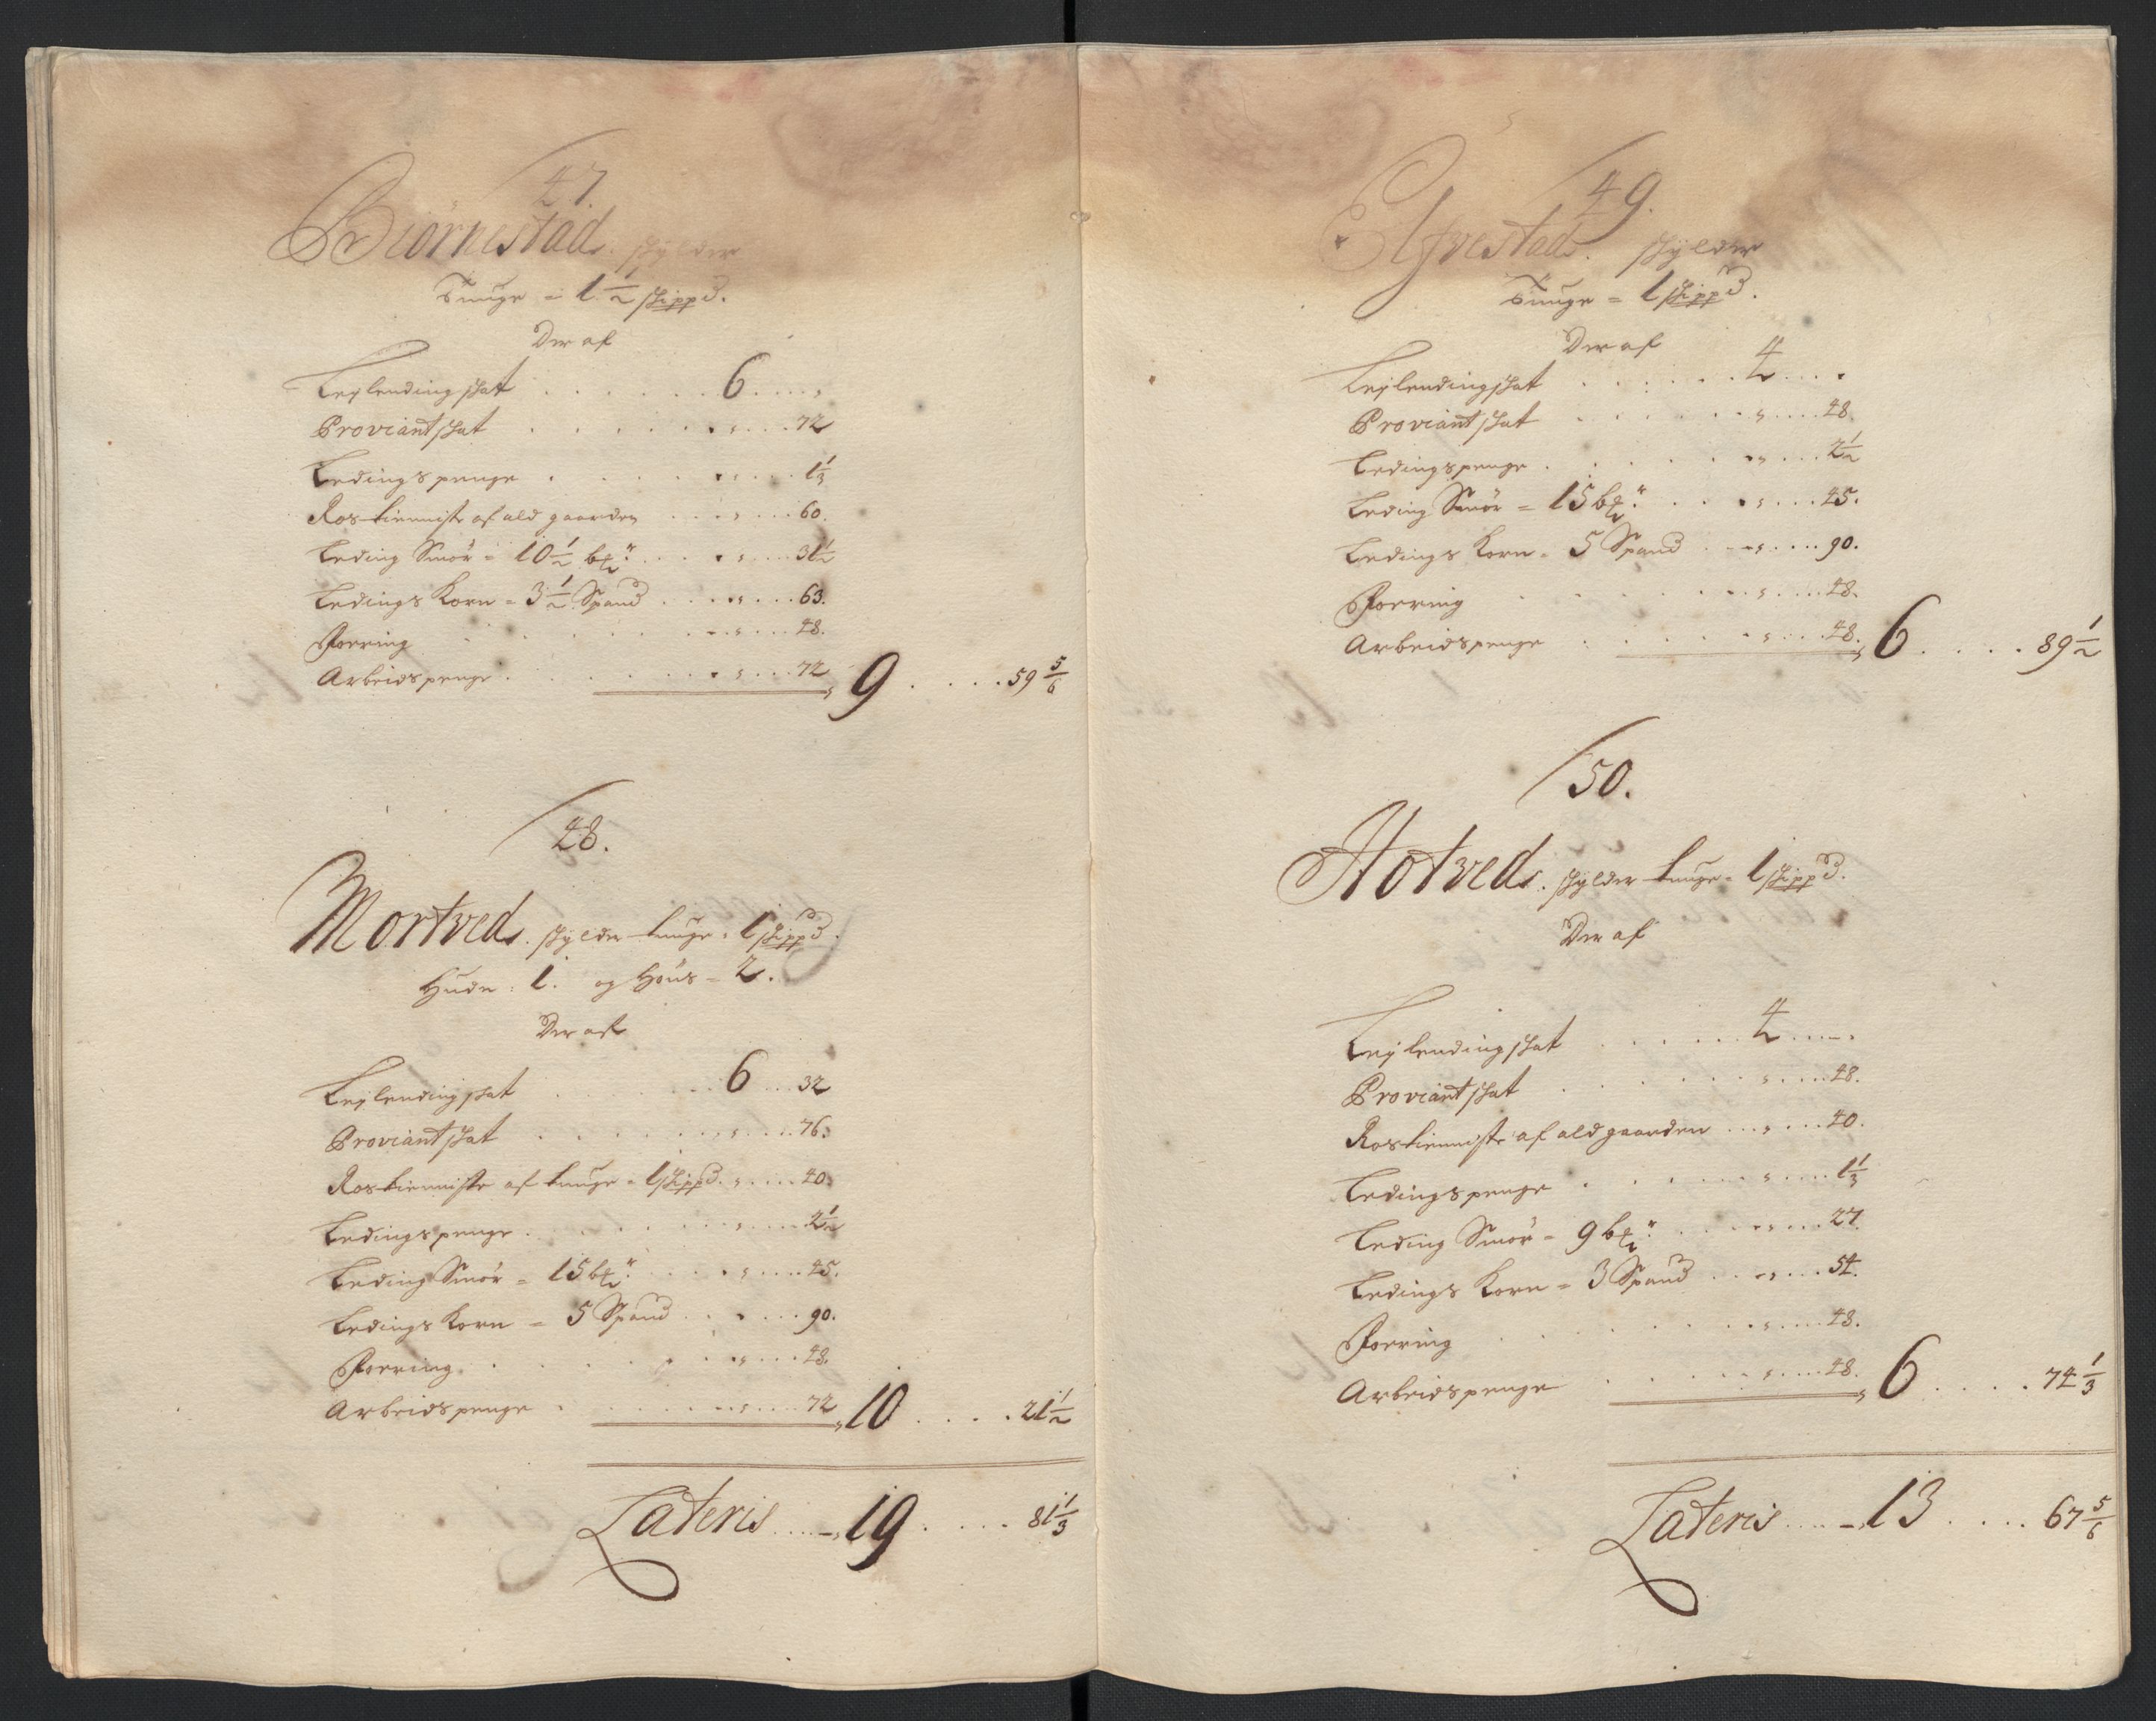 47.
Biørnestad. skylder
Tunge = 1 1/2 skippd.
Der af
Leylendingskat . . . . . . 6 . . . . „
Proviantskat . . . . . . „ . . . 72
Ledingspenge . . . . . „ . . . 1 1/3
Rostienniste af ald gaarden . . . „ . . . 60.
Leding Smør = 10 1/2 b℔r: . . . „ . . . 31 1/2
Ledings Korn = 3 1/2 Spand . . . „ . . . 63.
Foering . . . . . . „ . . . 48.
Arbeidspenge . . . . . . „ . . . 72 „ 9 . . . . 59 5/6
48.
Mortved. skylder tunge = 1 skippd.
Huder = 1. og Høns = 2.
Der af
Leylendingskat . . . . . 6 . . . 32
Proviantskat . . . . . . „ . . . 76.
Rostienniste af tunge = 1 skippd. „ . . . 40.
Ledingspenge . . . . . „ . . . 2 1/2
Leding Smør = 15 b℔r: . . . „ . . . 45.
Ledings Korn = 5 Spand . . „ . . . 90.
Foering . . . . . . „ . . . 48.
Arbeidspenge . . . . . „ . . . 72 „ 10 . . . . 21 1/2
Lateris . . . . 19 . . . . 81 1/3
49.
Elfvestad. skylder
Tunge = 1 skippd.
Der af
Leylendingskat . . . . . . 4 . . . .
Proviantskat . . . . . . „ . . . 48.
Ledingspenge . . . . . „ . . . 2 1/2
Leding Smør = 15 b℔r: . . . „ . . . 45.
Ledings Korn = 5 Spand . . „ . . . 90.
Foering . . . . . . „ . . . 48.
Arbeidspenge . . . . . „ . . . 48. „ 6 . . . . 89 1/2
50.
Hotved. skylder tunge = 1 skippd.
Der af
Leylendingskat . . . . . . 4 . . . .
Proviantskat . . . . . . „ . . . 48.
Rostienniste af ald gaarden . . . „ . . . 40.
Ledingspenge . . . . . „ . . . 1 1/3
Leding Smør = 9 b℔r: . . . „ . . . 27.
Ledings Korn = 3 Spand . . „ . . . 54.
Foering . . . . . . „ . . . 48.
Arbeidspenge . . . . . „ . . . 48. „ 6 . . . . 74 1/3
Lateris . . . . 13 . . . . 67 5/6